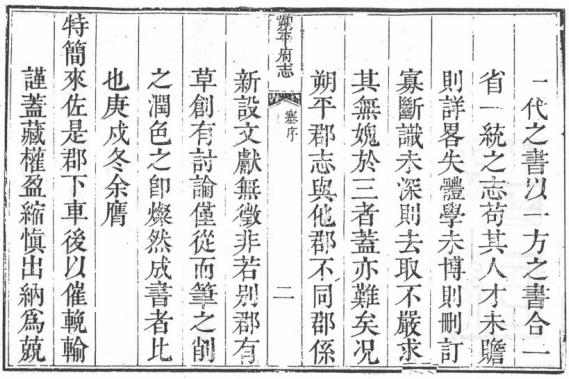 一代之書以一方之書合一
省一統之志苟其人才未贍
則詳畧失體學未博則刪訂
寡斷識未深則去取不嚴求
其無媿於三者蓋亦難矣况
朔平郡志與他郡不同郡係
朔平府志
序
二
新設文獻無徵非若別郡有
草創有討論僅從而筆之削
之潤色之卽燦然成書者比
也庚戌冬余膺
特簡來佐是郡下車後以催輓輸
謹蓋藏權盈縮愼出納爲兢